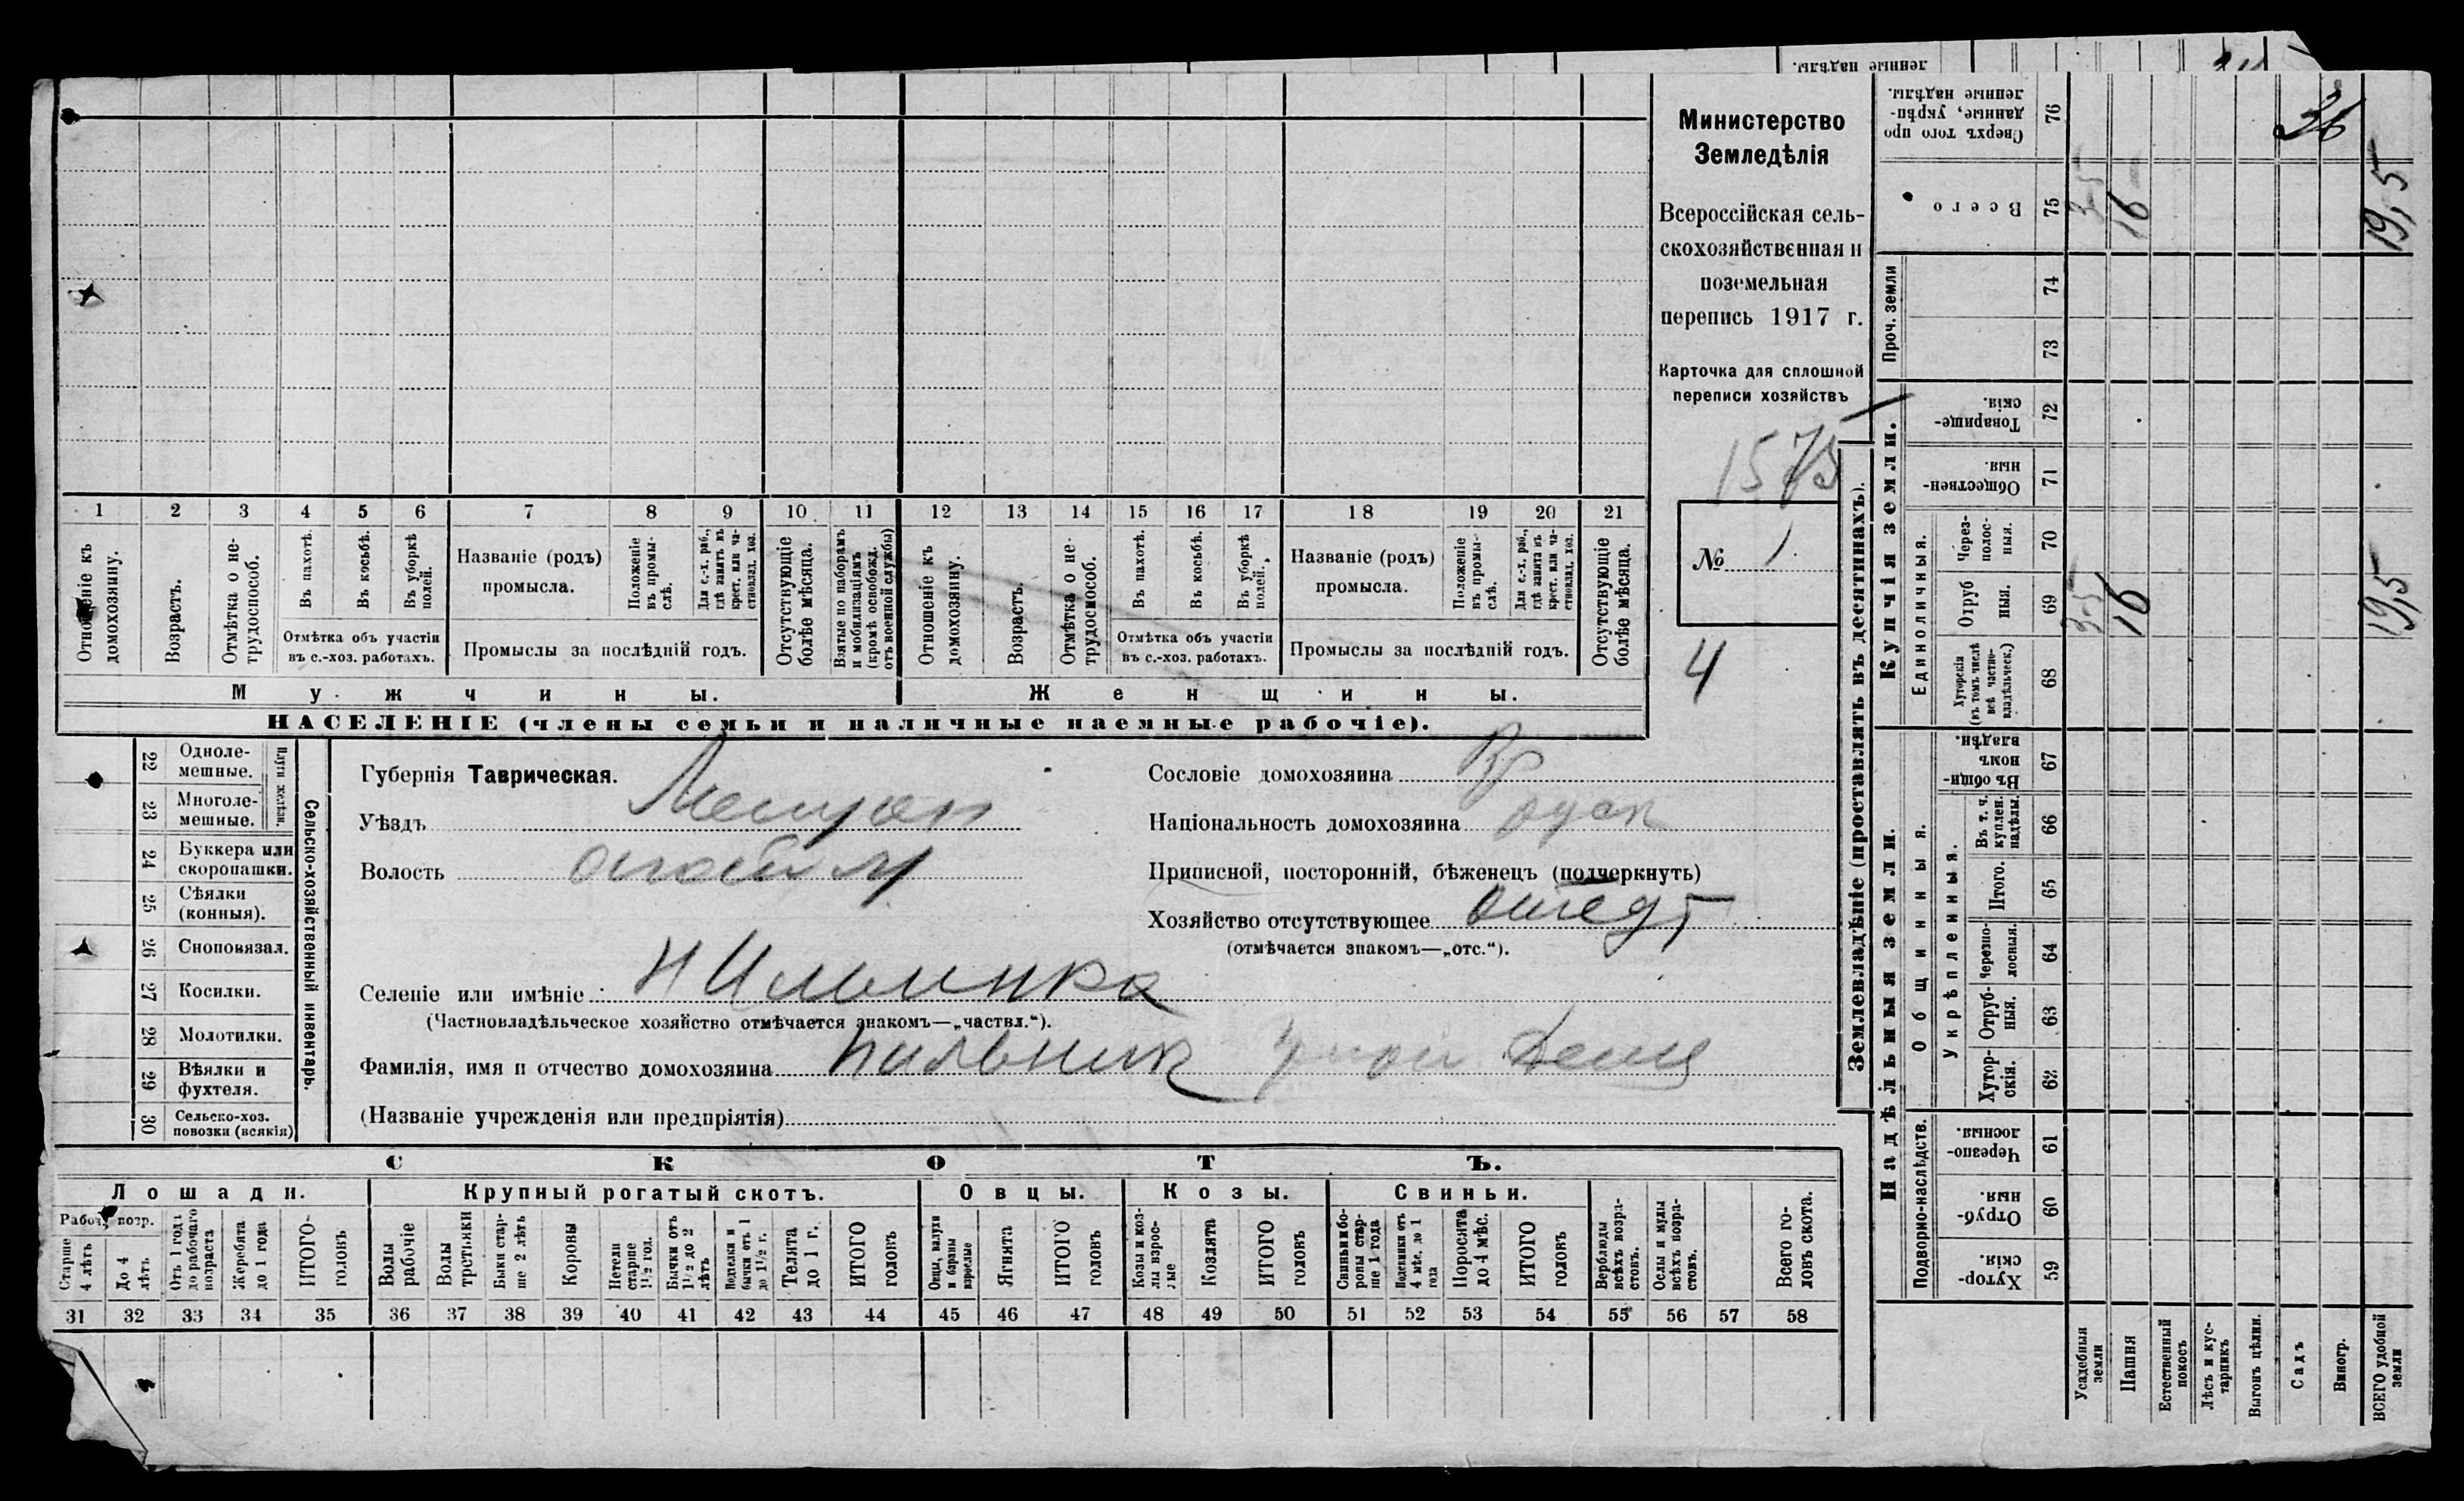 ленные надѣлы.
Министерство
Земледѣлія
Всероссійская сель-
скохозяйственная и
поземельная
перепись 1917 г.
Карточка для сплошной
переписи хозяйствъ
1575
№ 1
4
1 2 3 4 5 6 7 8 9 10 11 12 13 14 15 16 17 18 19 20 21
Отношеніе къ домохозяину.
Возрастъ.
Отмѣтка о не-трудоспособ.
Въ пахотѣ.
Въ косьбѣ.
Въ уборкѣ полей.
Отмѣтка объ участіи
въ с.-хоз. работахъ.
Названіе (родъ)
промысла.
Положеніе въ промы-слѣ.
Для с.-х. раб., гдѣ занятъ въ крест. или ча-стновлад. хоз.
Промыслы за послѣдній годъ.
Отсутствующіе болѣе мѣсяца.
Взятые по наборамъ и мобилизаціямъ (кромѣ освобожд. отъ военной службы)
Отношеніе къ домохозяину.
Возрастъ.
Отмѣтка о не-трудоспособ.
Въ пахотѣ.
Въ косьбѣ.
Въ уборкѣ полей.
Отмѣтка объ участіи
въ с.-хоз. работахъ.
Названіе (родъ)
промысла.
Положеніе въ промы-слѣ.
Для с.-х. раб., гдѣ занятъ въ крест. или ча-стновлад. хоз.
Промыслы за послѣдній годъ.
Отсутствующіе болѣе мѣсяца.
Мужчины.
Женщины.
НАСЕЛЕНІЕ (члены семьи и наличные наемные рабочіе).
Сельско-хозяйственный инвентарь.
Плуги желѣзн.
22 Одноле-мешные.
23 Многоле-мешные.
24 Буккера или скоропашки.
25 Сѣялки (конныя).
26 Сноповязал.
27 Косилки.
28 Молотилки.
29 Вѣялки и фухтеля.
30 Сельско-хоз. повозки (всякія)
Губернія Таврическая.
Уѣздъ
Волость
Селеніе или имѣніе Н Ильинка
(Частновладѣльческое хозяйство отмѣчается знакомъ—„частвл.“).
Фамилія, имя и отчество домохозяина Пильник
(Названіе учрежденія или предпріятія)
Сословіе домохозяина
Національность домохозяина
Приписной, посторонній, бѣженецъ (подчеркнуть)
Хозяйство отсутствующее
(отмѣчается знакомъ—„отс.“).
СКОТЪ.
Лошади.
Крупный рогатый скотъ.
Овцы.
Козы.
Свиньи.
Рабоч. возр.
Старше 4 лѣтъ
До 4 лѣтъ
Отъ 1 годъ до рабочаго возраста
Жеребята до 1 года
ИТОГО головъ
Волы рабочіе
Волы третьяки
Быки стар-ше 2 лѣтъ
Коровы
Нетели старше 1½ год.
Бычки отъ 1½ до 2 лѣтъ
Подтелки и бычки отъ 1 до 1½ г.
Телята до 1 г.
ИТОГО головъ
Овцы, валухи и бараны взрослые
Ягнята
ИТОГО головъ
Козы и коз-лы взрос-лые
Козлята
ИТОГО головъ
Свиньи и бо-ровы стар-ше 1 года
Подсвинки отъ 4 мѣс. до 1 года
Поросята до 4 мѣс.
ИТОГО головъ
Верблюды всѣхъ возра-стовъ.
Ослы и мулы всѣхъ возра-стовъ.
Всего го-ловъ скота.
31 32 33 34 35 36 37 38 39 40 41 42 43 44 45 46 47 48 49 50 51 52 53 54 55 56 57 58
Землевладѣніе (проставлять въ десятинахъ).
Надѣльныя земли.
Купчія земли.
Проч. земли
Подворно-наслѣдств.
Общинныя.
Укрѣпленныя.
Единоличныя.
Сверхъ того про-данные, укрѣп-ленные надѣлы. 76 36
Всего 75 3-5 16 19,5
74
73
Товарище-скія. 72
Обществен-ныя. 71
Через-полос-ныя. 70
Отруб-ныя. 69 3-5 16 19,5
Хуторскія (въ томъ числѣ всѣ частно-владѣльческ.) 68
Въ общи-номъ владѣн. 67
Въ т. ч. куплен. надѣлы. 66
Итого. 65
Черезпо-лосныя. 64
Отруб-ныя. 63
Хутор-скія. 62
Черезпо-лосныя. 61
Отруб-ныя. 60
Хутор-скія. 59
Усадебныя земли
Пашня
Естественный покосъ
Лѣсъ и кус-тарникъ
Выгонъ цѣлин.
Садъ
Виногр.
ВСЕГО удобной земли